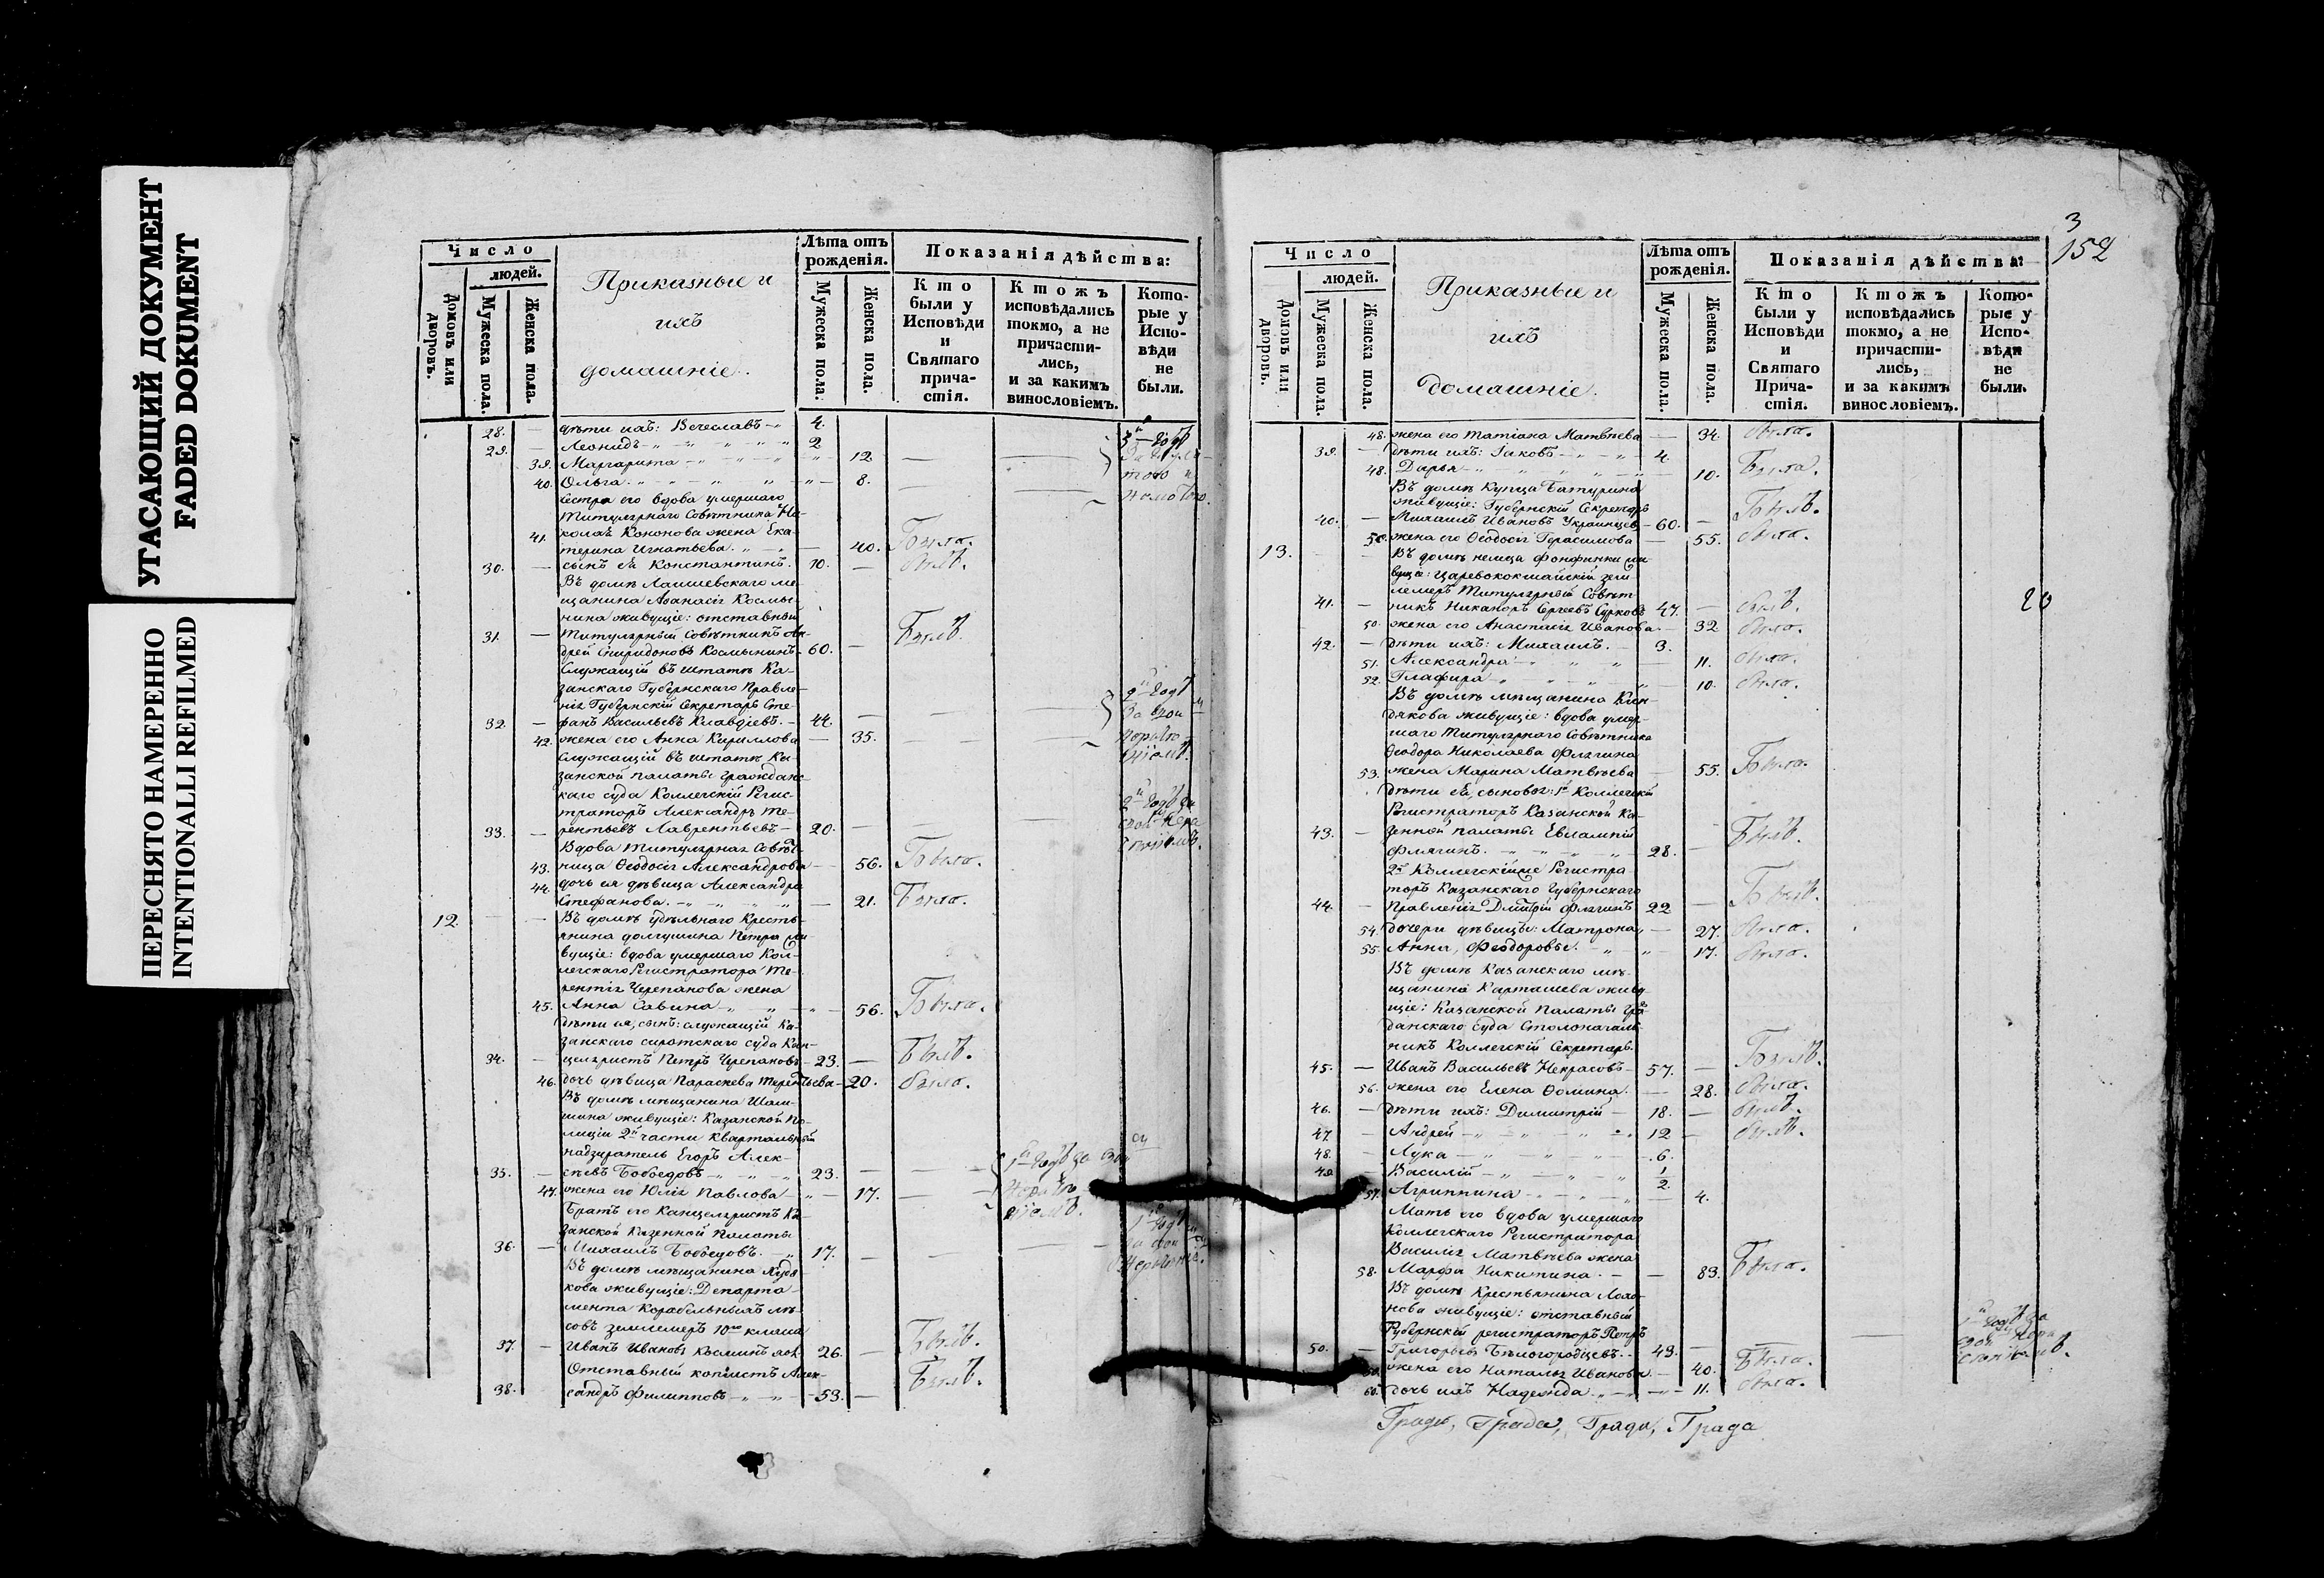 УГАСАЮЩИЙ ДОКУМЕНТ
FADED DOKUMENT
ПЕРЕСНЯТО НАМЕРЕННО
INTENTIONALLI REFILMED
Число
людей.
Домовъ или дворовъ.
Мужеска пола.
Женска пола.
Приказные и
ихъ
домашніе.
Лѣта отъ рожденія.
Мужеска пола.
Женска пола.
Показанія дѣйства:
Кто были у Исповѣди и Святаго причастія.
Ктожъ исповѣдались токмо, а не причастились, и за какимъ винословіемъ.
Которые у Исповѣди не были.
28. — дѣти ихъ: Вечеславъ 4.
29. — Леонидъ 2
39. Маргарита 12
40. Ольга 8.
Сестра его вдова умершаго
Титулярнаго Совѣтника Ни-
колая Кононова жена Ека-
41. терина Игнатьева. — 40. Была.
30. — сынъ ея Константинъ. 10. — былъ.
Въ домѣ Лаишевскаго ме-
щанина Аѳанасія Космы-
нина живущіе: отставный
31. — Титулярный Совѣтникъ Ан-
дрей Спиридоновъ Космынинъ 60. — Былъ.
Служащій въ штатѣ Ка-
занскаго Губернскаго Правле-
нія Губернскій Секретарь Сте-
32. — фанъ Васильевъ Клавдіевъ. 44.
42. жена его Анна Кириллова — 35.
Служащій въ штатѣ Ка-
занской палаты Гражданс-
каго суда Коллегскій Регис-
траторъ Александръ Те-
33. — рентьевъ Лаврентьевъ 20.
Вдова Титулярная Совѣт-
43. ница Ѳеодосія Александрова — 56. Была.
44. дочь ея дѣвица Александра
Стефанова. — 21. Была.
12. Въ домѣ удѣльнаго Кресть-
янина Долгушина Петра жи-
вущіе: вдова умершаго Кол-
легскаго Регистратора Те-
рентія Черепанова жена
45. Анна Савина 56. Была.
Дѣти ея, сынъ: служащій Ка-
занскаго сиротскаго суда Кан-
34. — целяристъ Петръ Черепановъ 23. — Былъ.
46. дочь дѣвица Параскева Терентьева 20. была.
Въ домѣ мѣщанина Шал-
шина живущіе: Казанской По-
лиціи 2й части квартальный
надзиратель Егоръ Алек-
35. — сѣевъ Бобоедовъ 23.
47. жена его Юлія Павлова 17.
Братъ его Канцеляристъ Ка-
занской Казенной Палаты
36. — Михаилъ Бобоедовъ. 17.
Въ домѣ мѣщанина Худя-
кова живущіе: Департа-
мента Корабельныхъ лѣ-
совъ землемеръ 10го класса
37. — Иванъ Ивановъ 26. — Былъ.
Отставный копіистъ Алек-
38. сандръ Филипповъ 53. — Былъ.
3
152
Число
людей.
Домовъ или дворовъ.
Мужеска пола.
Женска пола.
Приказные и
ихъ
домашніе.
Лѣта отъ рожденія.
Мужеска пола.
Женска пола.
Показанія дѣйства:
Кто были у Исповѣди и Святаго Причастія.
Ктожъ исповѣдались токмо, а не причастились, и за какимъ винословіемъ.
Которые у Исповѣди не были.
48. жена его Татіана Матвѣева — 34. была.
39. — дѣти ихъ: Іаковъ 4.
48. Дарья 10. Была.
Въ домѣ Купца Батурина
живущіе: Губернскій Секретарь
40. — Михаилъ Ивановъ Украинцевъ 60. — Былъ.
50. жена его Ѳеодосія Герасимова — 55. была.
13. Въ домѣ немца Фонфинки жи-
вущіе: Царевококшайскій зем-
лемеръ Титулярный Совѣт-
41. — никъ Никаноръ Сергеевъ Сурковъ 47. — былъ.
20
50. жена его Анастасія Иванова — 32 была.
42. — дѣти ихъ: Михаилъ. 3.
51. Александра 11. была.
52. Глафира 10. была.
Въ домѣ мѣщанина Кин-
дякова живущіе: вдова умер-
шаго Титулярнаго Совѣтника
Ѳеодора Николаева Флягина
53. жена Марина Матвѣева — 55. Была.
дѣти ея, сыновья: 1й Коллегскій
Регистраторъ Казанской Ка-
43. — зенной палаты Евлампій
Флягинъ. 28. — Былъ.
2й Коллегскій Регистра-
торъ Казанскаго Губернскаго
44. — Правленія Дмитрій Флягинъ 22 — Былъ.
54. дочери дѣвицы: Матрона, — 27. была.
55. Анна, Феодоровы. 17. была.
Въ домѣ Казанскаго мѣ-
щанина Карташева живу-
щіе: Казанской Палаты Граж-
данскаго суда Столоначаль-
никъ Коллегскій Секретарь
45. — Иванъ Васильевъ Некрасовъ 57. — Былъ.
56. жена его Елена Ѳомина. — 28. была.
46. — дѣти ихъ: Димитрій 18. — былъ.
47. — Андрей 12 — былъ.
48. — Лука 6.
49. — Василій 1/2
57. Агриппина 4.
Мать его вдова умершаго
Коллегскаго Регистратора
Василія Матвѣева жена
58. Марѳа Никитина. — 83. Была.
Въ домѣ Крестьянина
живущіе: отставный
Губернскій регистраторъ Петръ
50. — Григорьевъ Бѣлогородцевъ. 43.
жена его Наталья Иванова 40. Была.
60. дочь ихъ Надежда 11. была.
Града, Града, Града, Града